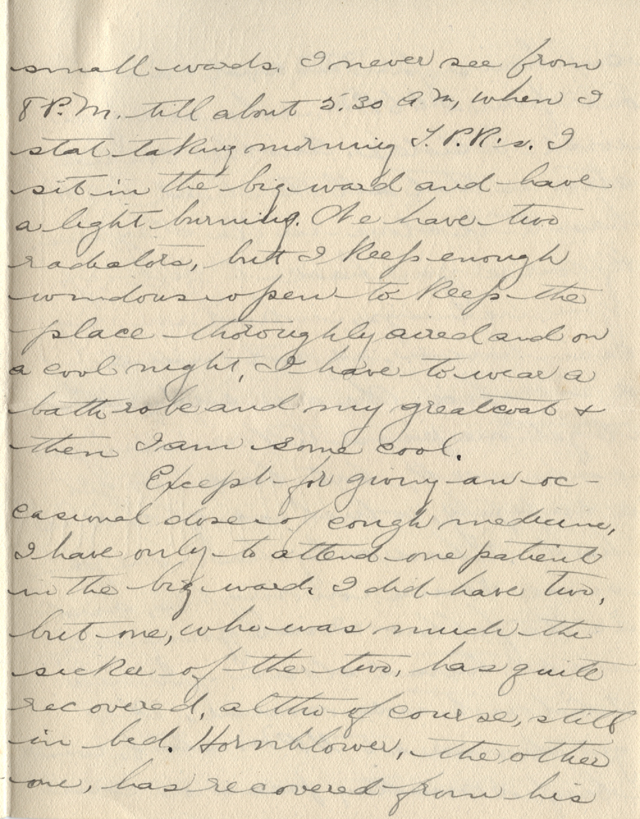 small wards. I never see from
8 P.M. till about 5.30 A.M, when I
stat taking morning T.P.R.s. I
sit in the big ward and have
a light burning. We have two
radiators, but I keep enough
windows open to keep the
place thoroughly aired and on
a cool night, I have to wear a
bath robe and my greatcoat &
then I am some cool.
Except for giving an oc-
casional dose of cough medicine,
I have only to attend one patient
in the big ward. I did have two,
but one, who was much the
sicker of the two, has quite
recovered, altho of course, still
in bed. Hornblower, the other
one, has recovered from his